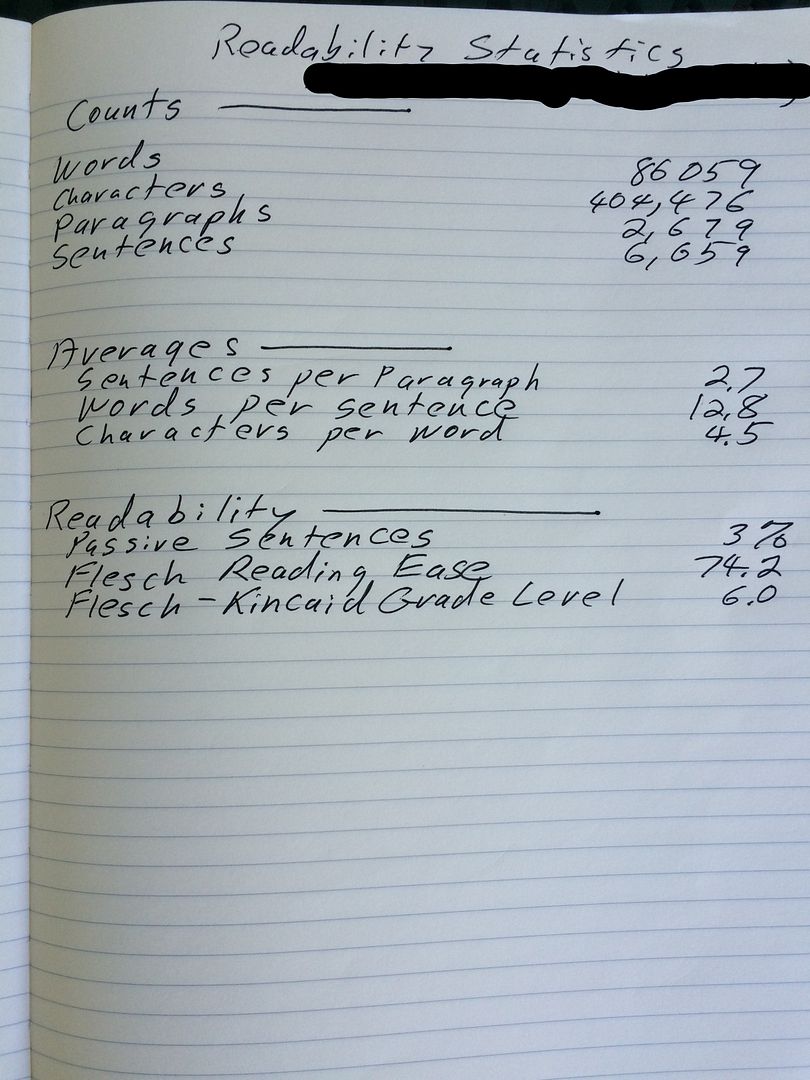 Readability Statistics
Counts
Words 86059
Characters 404,476
Paragraphs 2,679
Sentences 6,659
Averages
Sentences per Paragraph 2.7
Words per sentence 12.8
Characters per word 4.5
Readability
Passive Sentences 3%
Flesch Reading Ease 74.2
Flesch-Kincaid Grade Level 6.0